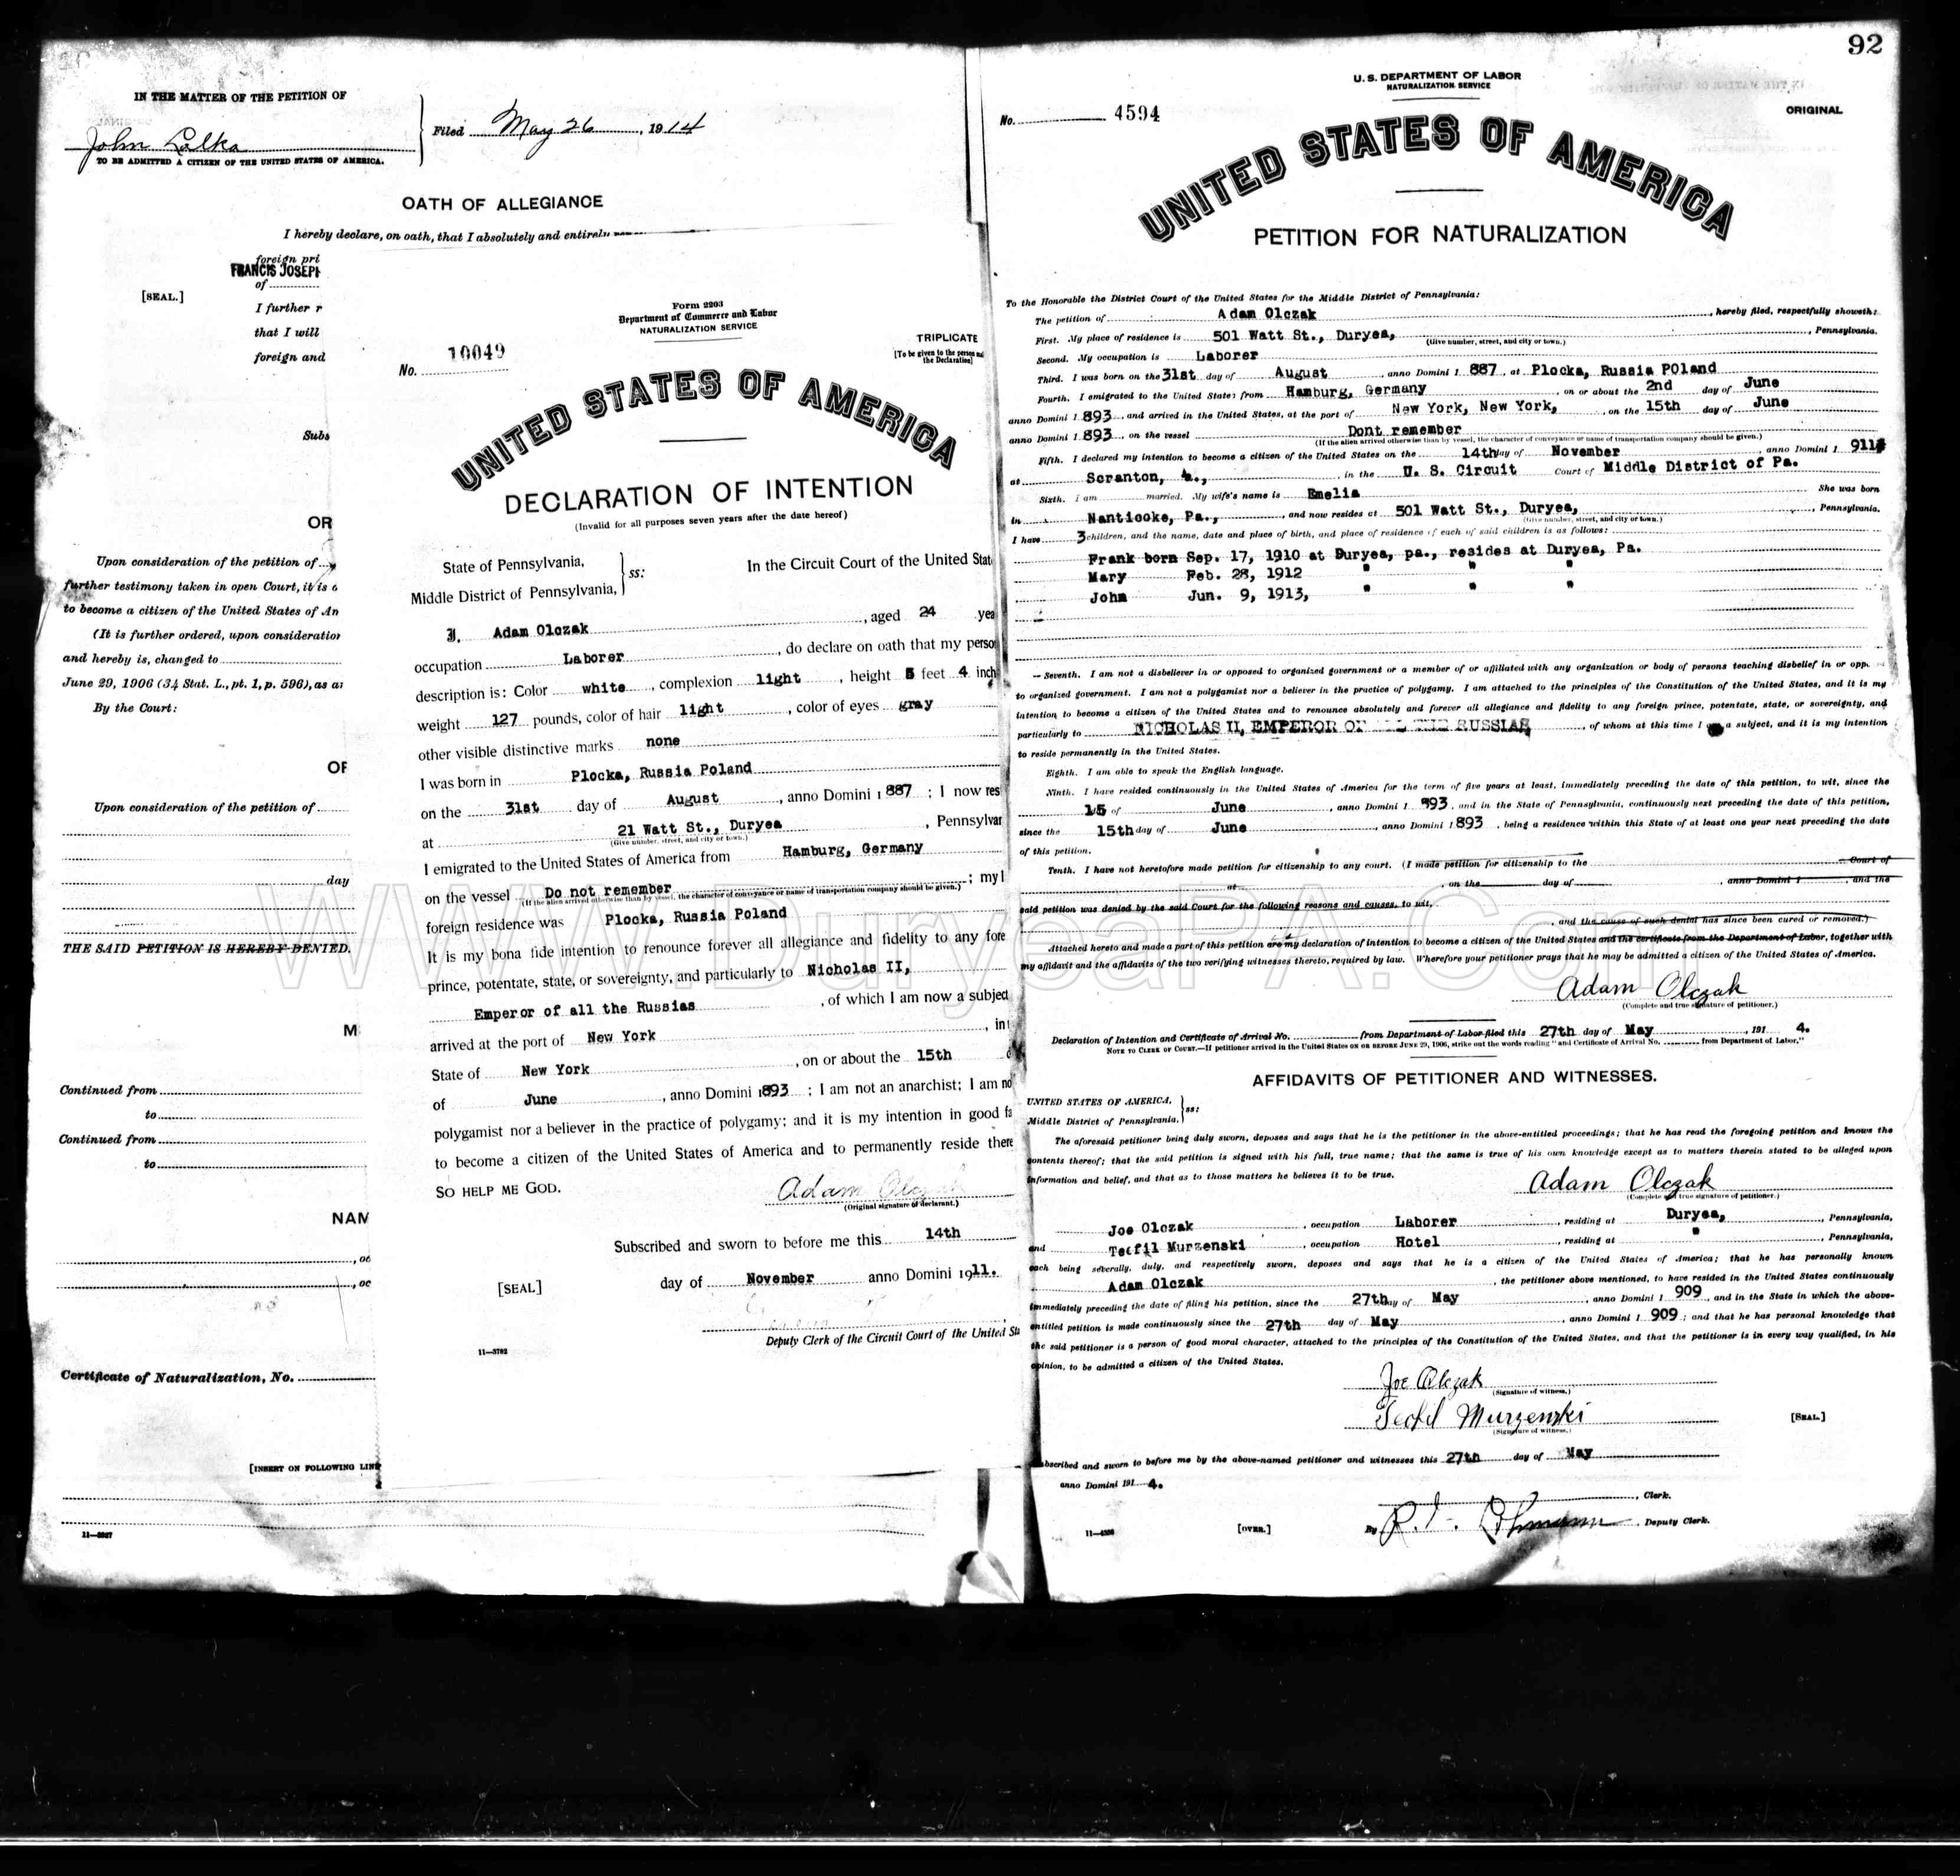 92
IN THE MATTER OF THE PETITION OF
John Lalka
TO BE ADMITTED A CITIZEN OF THE UNITED STATES OF AMERICA.
Filed May 26, 1914
OATH OF ALLEGIANCE
I hereby declare, on oath, that I absolutely and entirely
foreign pri
FRANCIS JOSEPH
of
[SEAL.]
I further r
that I will
foreign and
Subs
OR
Upon consideration of the petition of
further testimony taken in open Court, it is o
to become a citizen of the United States of Am
(It is further ordered, upon consideration
and hereby is, changed to
June 29, 1906 (34 Stat. L., pt. 1, p. 596), as a
By the Court:
OF
Upon consideration of the petition of
day
THE SAID PETITION IS HEREBY DENIED.
M
Continued from
to
Continued from
to
NAM
, oc
, oc
Certificate of Naturalization, No.
[INSERT ON FOLLOWING LINE
11—3927
Form 2203
Department of Commerce and Labor
NATURALIZATION SERVICE
TRIPLICATE
[To be given to the person
the Declaration]
No. 10049
UNITED STATES OF AMERICA
DECLARATION OF INTENTION
(Invalid for all purposes seven years after the date hereof)
State of Pennsylvania,
Middle District of Pennsylvania, ss: In the Circuit Court of the United Stat
I, Adam Olczak, aged 24 yea
occupation Laborer, do declare on oath that my perso
description is: Color white, complexion light, height 5 feet 4 inch
weight 127 pounds, color of hair light, color of eyes gray
other visible distinctive marks none
I was born in Plocka, Russia Poland
on the 31st day of August, anno Domini 1887; I now res
at 21 Watt St., Duryea, Pennsylvan
(Give number, street, city or town.)
I emigrated to the United States of America from Hamburg, Germany
on the vessel Do not remember; my l
(If the alien arrived otherwise than by vessel, the character of conveyance or name of transportation company should be given.)
foreign residence was Plocka, Russia Poland
It is my bona fide intention to renounce forever all allegiance and fidelity to any fore
prince, potentate, state, or sovereignty, and particularly to Nicholas II,
Emperor of all the Russias, of which I am now a subject
arrived at the port of New York, in t
State of New York, on or about the 15th d
of June, anno Domini 1893; I am not an anarchist; I am no
polygamist nor a believer in the practice of polygamy; and it is my intention in good fa
to become a citizen of the United States of America and to permanently reside there
SO HELP ME GOD.
Adam Olczak
(Original signature of declarant.)
Subscribed and sworn to before me this 14th
[SEAL] day of November anno Domini 1911.
Deputy Clerk of the Circuit Court of the United Sta
11—3702
U. S. DEPARTMENT OF LABOR
NATURALIZATION SERVICE
No. 4594
ORIGINAL
UNITED STATES OF AMERICA
PETITION FOR NATURALIZATION
To the Honorable the District Court of the United States for the Middle District of Pennsylvania:
The petition of Adam Olczak, hereby filed, respectfully showeth:
First. My place of residence is 501 Watt St., Duryea, Pennsylvania.
(Give number, street, and city or town.)
Second. My occupation is Laborer
Third. I was born on the 31st day of August, anno Domini 1887, at Plocka, Russia POland
Fourth. I emigrated to the United States from Hamburg, Germany, on or about the 2nd day of June
anno Domini 1893, and arrived in the United States, at the port of New York, New York, on the 15th day of June
anno Domini 1893, on the vessel Dont remember
(If the alien arrived otherwise than by vessel, the character of conveyance or name of transportation company should be given.)
Fifth. I declared my intention to become a citizen of the United States on the 14th day of November, anno Domini 1911
at Scranton, in the U. S. Circuit Court of Middle District of Pa.
Sixth. I am married. My wife's name is Emelia She was born
in Nanticoke, Pa., and now resides at 501 Watt St., Duryea, Pennsylvania.
(Give number, street, and city or town.)
I have 3 children, and the name, date and place of birth, and place of residence of each of said children is as follows:
Frank born Sep. 17, 1910 at Duryea, pa., resides at Duryea, Pa.
Mary Feb. 28, 1912 " " "
John Jun. 9, 1913, " " "
Seventh. I am not a disbeliever in or opposed to organized government or a member of or affiliated with any organization or body of persons teaching disbelief in or opp.
to organized government. I am not a polygamist nor a believer in the practice of polygamy. I am attached to the principles of the Constitution of the United States, and it is my
intention to become a citizen of the United States and to renounce absolutely and forever all allegiance and fidelity to any foreign prince, potentate, state, or sovereignty, and
particularly to NICHOLAS II, EMPEROR OF ALL THE RUSSIAS, of whom at this time I am a subject, and it is my intention
to reside permanently in the United States.
Eighth. I am able to speak the English language.
Ninth. I have resided continuously in the United States of America for the term of five years at least, immediately preceding the date of this petition, to wit, since the
15 of June, anno Domini 1893, and in the State of Pennsylvania, continuously next preceding the date of this petition,
since the 15th day of June, anno Domini 1893, being a residence within this State of at least one year next preceding the date
of this petition.
Tenth. I have not heretofore made petition for citizenship to any court. (I made petition for citizenship to the Court of
at, on the day of, anno Domini 1, and the
said petition was denied by the said Court for the following reasons and causes, to wit,
, and the cause of such denial has since been cured or removed.)
Attached hereto and made a part of this petition are my declaration of intention to become a citizen of the United States and the certificate from the Department of Labor, together with
my affidavit and the affidavits of the two verifying witnesses thereto, required by law. Wherefore your petitioner prays that he may be admitted a citizen of the United States of America.
Adam Olczak
(Complete and true signature of petitioner.)
Declaration of Intention and Certificate of Arrival No. from Department of Labor filed this 27th day of May, 1914.
NOTE TO CLERK OF COURT.—If petitioner arrived in the United States ON OR BEFORE JUNE 29, 1906, strike out the words reading "and Certificate of Arrival No. from Department of Labor."
AFFIDAVITS OF PETITIONER AND WITNESSES.
UNITED STATES OF AMERICA,
Middle District of Pennsylvania. ss:
The aforesaid petitioner being duly sworn, deposes and says that he is the petitioner in the above-entitled proceedings; that he has read the foregoing petition and knows the
contents thereof; that the said petition is signed with his full, true name; that the same is true of his own knowledge except as to matters therein stated to be alleged upon
information and belief, and that as to those matters he believes it to be true.
Adam Olczak
(Complete and true signature of petitioner.)
Joe Olczak, occupation Laborer, residing at Duryea, Pennsylvania,
and Teofil Murzenski, occupation Hotel, residing at ", Pennsylvania,
each being severally, duly, and respectively sworn, deposes and says that he is a citizen of the United States of America; that he has personally known
Adam Olczak, the petitioner above mentioned, to have resided in the United States continuously
immediately preceding the date of filing his petition, since the 27th day of May, anno Domini 1909, and in the State in which the above-
entitled petition is made continuously since the 27th day of May, anno Domini 1909; and that he has personal knowledge that
the said petitioner is a person of good moral character, attached to the principles of the Constitution of the United States, and that the petitioner is in every way qualified, in his
opinion, to be admitted a citizen of the United States.
Joe Olczak
(Signature of witness.)
Teofil Murzenski
(Signature of witness.)
[SEAL.]
Subscribed and sworn to before me by the above-named petitioner and witnesses this 27th day of May
anno Domini 1914.
, Clerk.
11—4396 [OVER.] By , Deputy Clerk.
WWW.DuryeaPA.Com